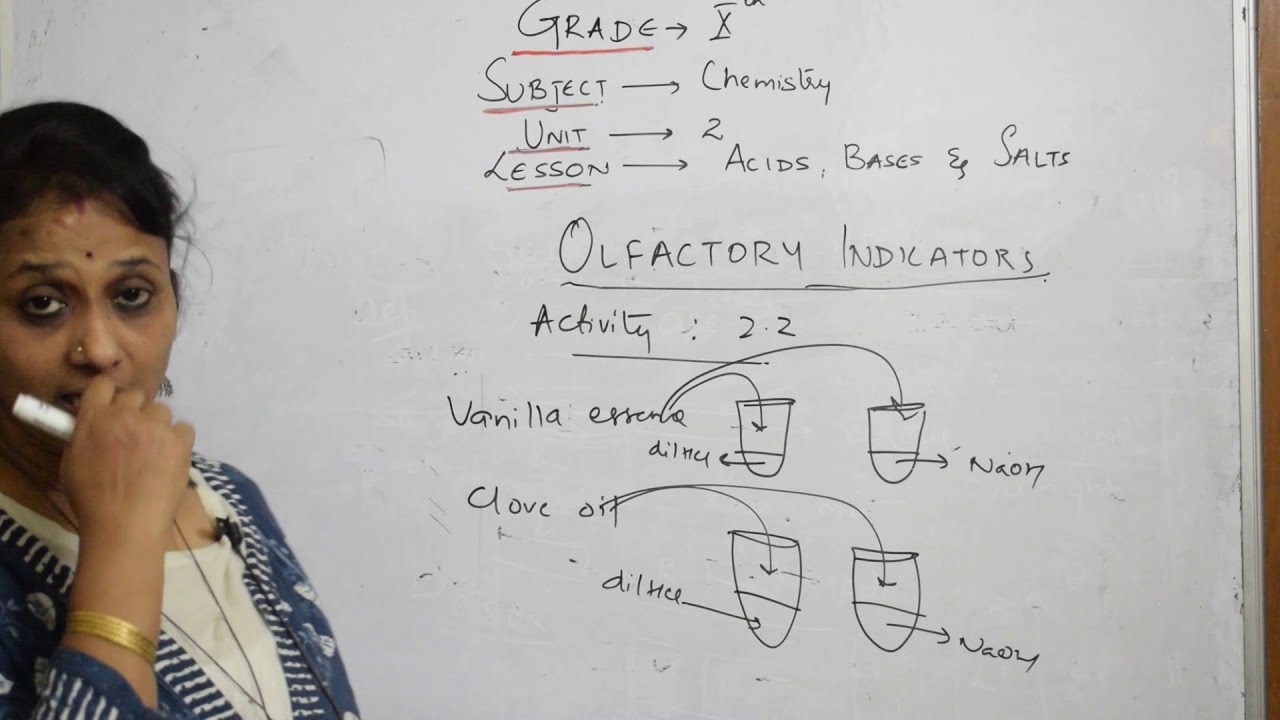 GRADE → Xth
SUBJECT → Chemistry
UNIT → 2
LESSON → ACIDS, BASES & SALTS
OLFACTORY INDICATORS
Activity : 2.2
Vanilla essence
dil HCl
NaOH
Clove oil
dil HCl
NaOH